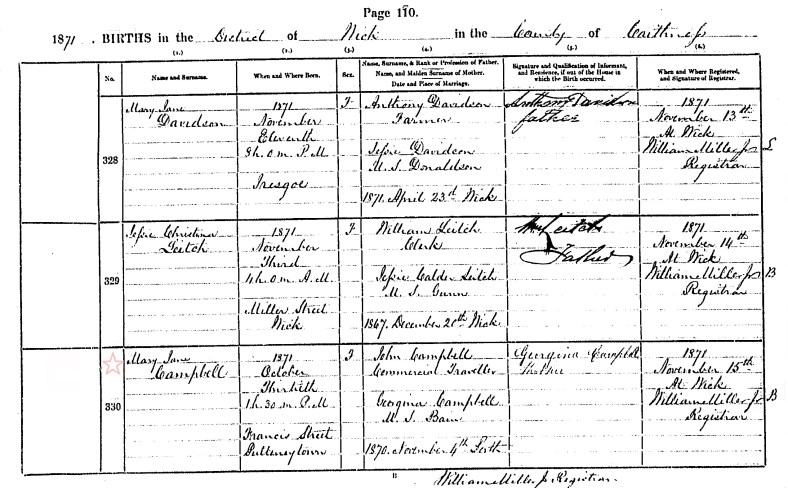 Page 110.
1871. BIRTHS in the District of Wick in the County of Caithness
(1.) (2.) (3.) (4.) (5.) (6.)
No.
Name and Surname.
When and Where Born.
Sex.
Name, Surname, & Rank or Profession of Father.
Name, and Maiden Surname of Mother.
Date and Place of Marriage.
Signature and Qualification of Informant,
and Residence, if out of the House in
which the Birth occurred.
When and Where Registered,
and Signature of Registrar.
328
Mary Jane
Davidson
1871
November
Eleventh
8h. 0m. P.M.
F
Anthony Davidson
Farmer
Jessie Davidson
M.S. Donaldson
1871. April 23rd Wick
Anthony Davidson
father
1871
November 13th
At Wick
William Miller Jr
Registrar
329
Jessie Christina
Leitch
1871
November
Third
4h. 0m. A.M.
Miller Street
Wick
F
William Leitch
Clerk
Jessie Calder Leitch
M.S. Gunn
1867. December Wick
Wm Leitch
Father
1871
November 14th
At Wick
William Miller Jr B
Registrar
330
Mary Jane
Campbell
1871
October
Thirtieth
1h. 30m. P.M.
Francis Street
Pulteneytown
F
John Campbell
Commercial Traveller
Georgina Campbell
M.S. Bain
1870. November 4th Perth
Georgina Campbell
Mother
1871
November 15th
At Wick
William Miller Jr B
Registrar
B
William Miller Jr Registrar.